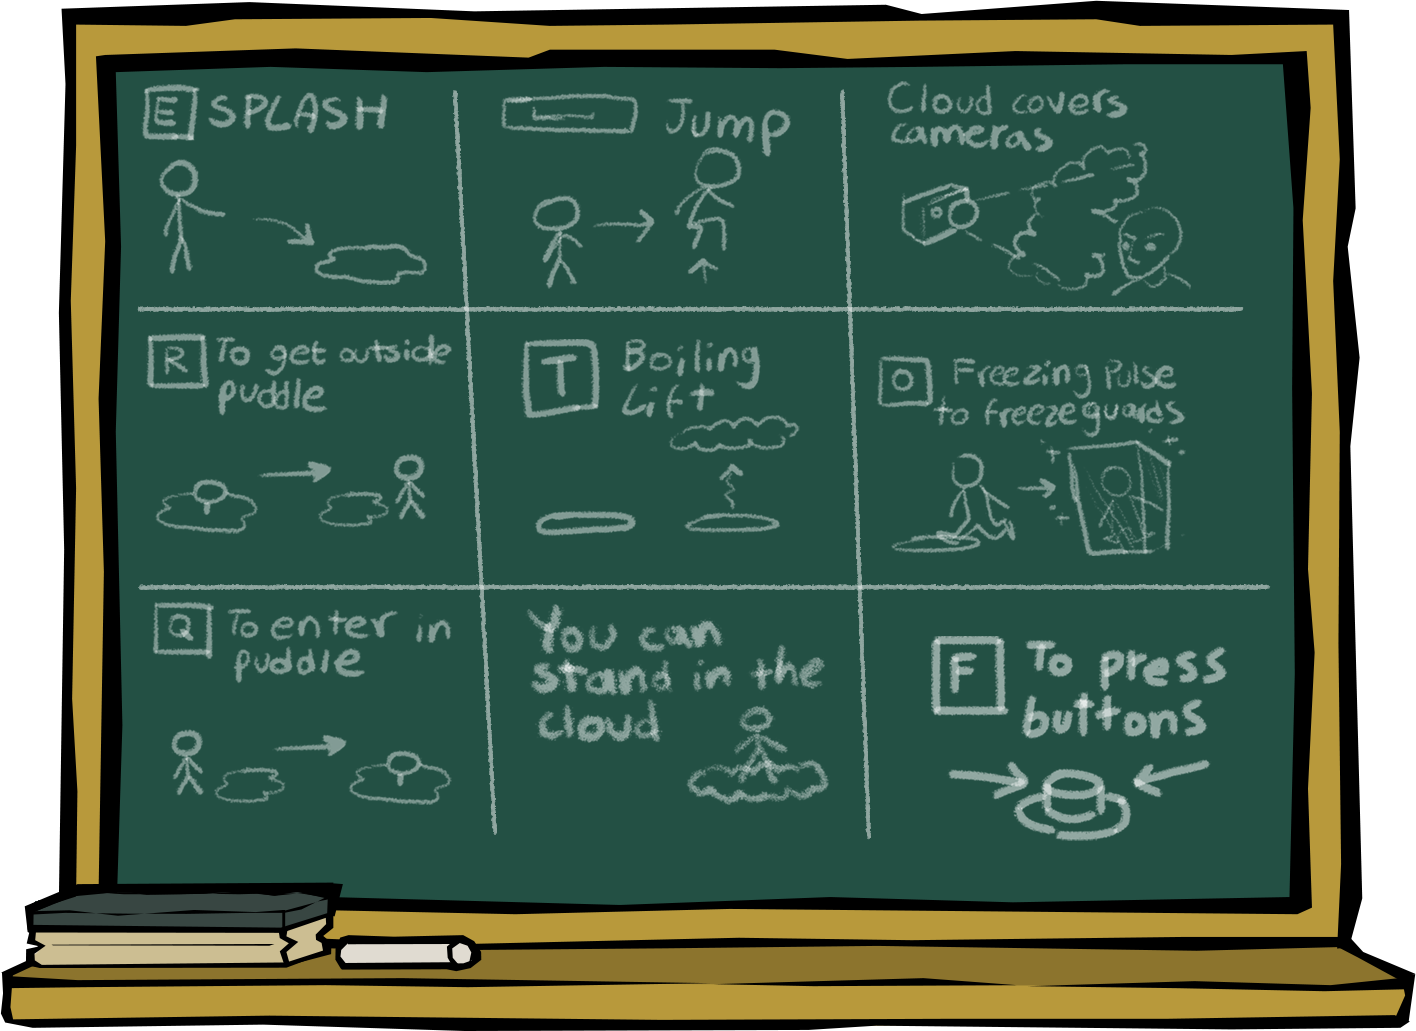 E SPLASH
Jump
Cloud covers
cameras
R To get outside
puddle
T Boiling
Lift
O Freezing Pulse
to freeze guards
Q To enter in
puddle
You can
stand in the
cloud
F To press
buttons